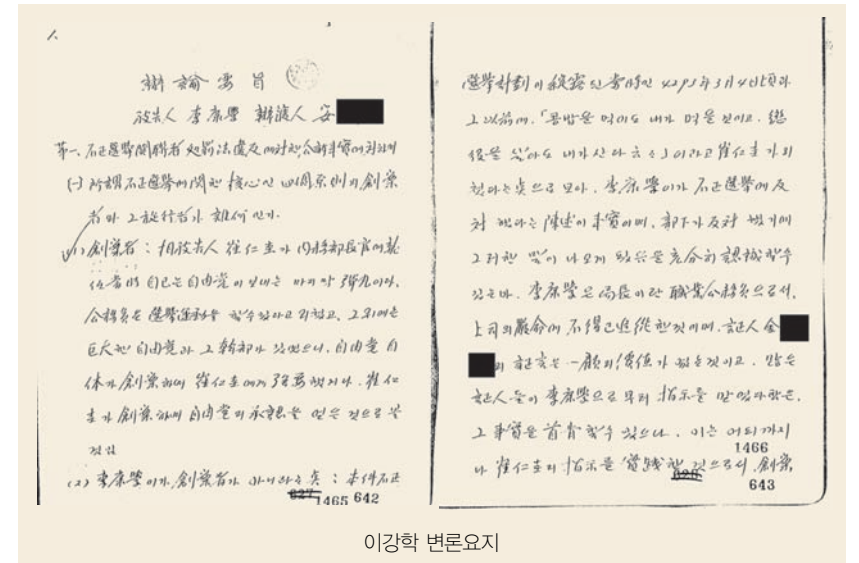 1.
辯論要旨
被告人 李康學 辯護人 安
第一、不正選擧關聯者 處罰法違反에對한 公訴事實에 對하여
(一) 所謂不正選擧에 關한 核心인 四個原則의 創案
者와 그 施行者가 誰何인가.
(1) 創案者 : 相被告人 崔仁圭가 內務部長官에 就
任當時 自己는 自由党이 보내는 마지막 彈丸이다.
公務員은 選擧運動을 할수 있다고 외쳤고, 그외에는
巨大한 自由党과 그 幹部가 있었으니, 自由党 自
体가 創案하여 崔仁圭에게 强要했거나, 崔仁
圭가 創案하여 自由党의 承認을 얻은 것으로 볼
것임
(2) 李康學이가 創案者가 아니라는 点 : 本件 不正
627 1465 642
選擧計劃이 移當時인 4293年3月4日頃과
그 以前에, 「콩밥을 먹어도 내가 먹을 것이고, 懲
役을 살아도 내가 산다 云々」이라고 崔仁圭가 외
쳤다는 点으로 보아, 李康學이가 不正選擧에 反
對했다는 陳述이 事實이며, 部下가 反對했기에
그러한 말이 나오게 되었음을 充分히 認識할수
있는바, 李康學은 局長이란 職業公務員으로서,
上司의 嚴命에 不得已 追從한것이며, 証人 金
의 証言은 一顧의 價値가 없는것이고, 많은
証人들이 李康學으로부터 指示를 받었다함은,
그 事實을 首肯할수 있으나, 이는 어디까지
1466
나 崔仁圭의 指示를 實踐한 것으로서 創案
626
643
이강학 변론요지